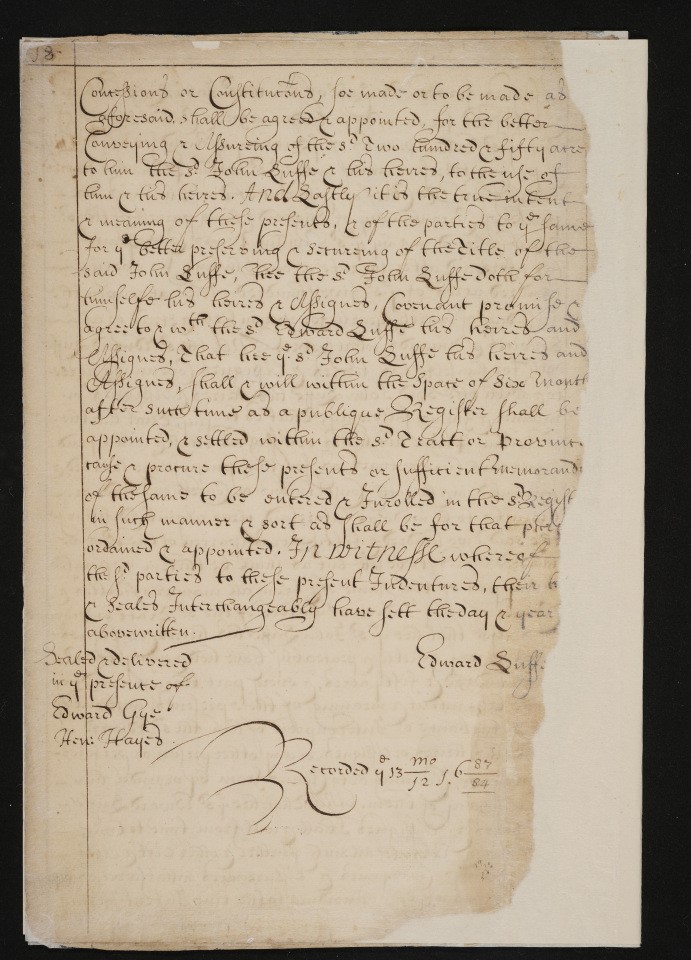 18
Concessions or Constitutõns, soe made or to be made as
aforesaid shall be agreed & appointed, for the better
Conveying & Assureing of the sd Two hundred & fifty acre
to him the sd John Luffe & his heires, to the use of
him & his heires. And Lastly it is the true intent
& meaning of these presents, & of the parties to ye same
for ye better preserving & secureing of the Title of the
said John Luffe, hee the sd John Luffe doth for
himselfe his heires & Assignes, Covenant promise &
agree to & wth the sd Edward Luffe his heires and
Assignes, That hee ye sd John Luffe his heires and
Assignes, shall & will within the space of six Mont
after such time as a publique Register shall be
appointed, & settled within the sd Tract or Provinc
cause & procure these presents or sufficient Memorand
of the same to be entered & Inrolled in the sd Regist
in such manner & sort as shall be for that
ordained & appointed. In Witnesse whereof
the sd parties to these present Indentures, their
& Seales Interchangeably have sett the day & year
abovewritten.
Sealed & delivered
in ye presence of
Edward Gye
Hen: Hayes.
Edward Luffe
Recorded ye 13 mo 12 1683/84